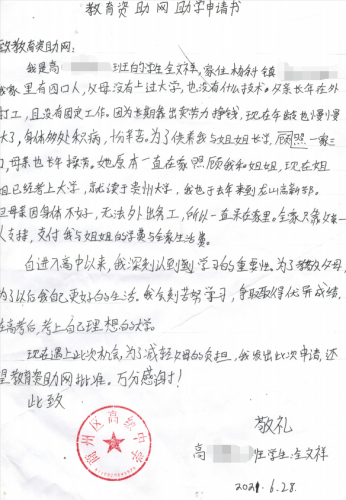 教育资助网助学申请书
致教育资助网：
我是高 班的学生全文祥，家住杨科镇
我家里有四口人，父母没有上过大学，也没有什么技术。父亲长年在外
打工，且没有固定工作。因为长期靠出卖劳力挣钱，现在年龄也慢慢
大了，身体多处积病，十分辛苦。为了供养我与姐姐上学，顾照一家三
口，母亲也长年操劳。她原本一直在家照顾我和姐姐，现在姐
姐已经考上大学，就读于贵州大学，我也于去年来到 高新部。
但母亲因身体不好，无法外出务工，所以一直呆在家里。全家只靠父亲一
人支撑，支付我与姐姐的学费与全家生活费。
自进入高中以来，我深刻认识到学习的重要性。为了报答父母，
为了以后我自己更好的生活。我会刻苦努力学习，争取取得优异成绩，
在高考后，考上自己理想的大学。
现在遇上此次机会，为了减轻父母的负担，我发出此次申请，还
望教育资助网批准。万分感谢！
此致
敬礼
高 班学生：全文祥
2021.6.28.
州区高级中学